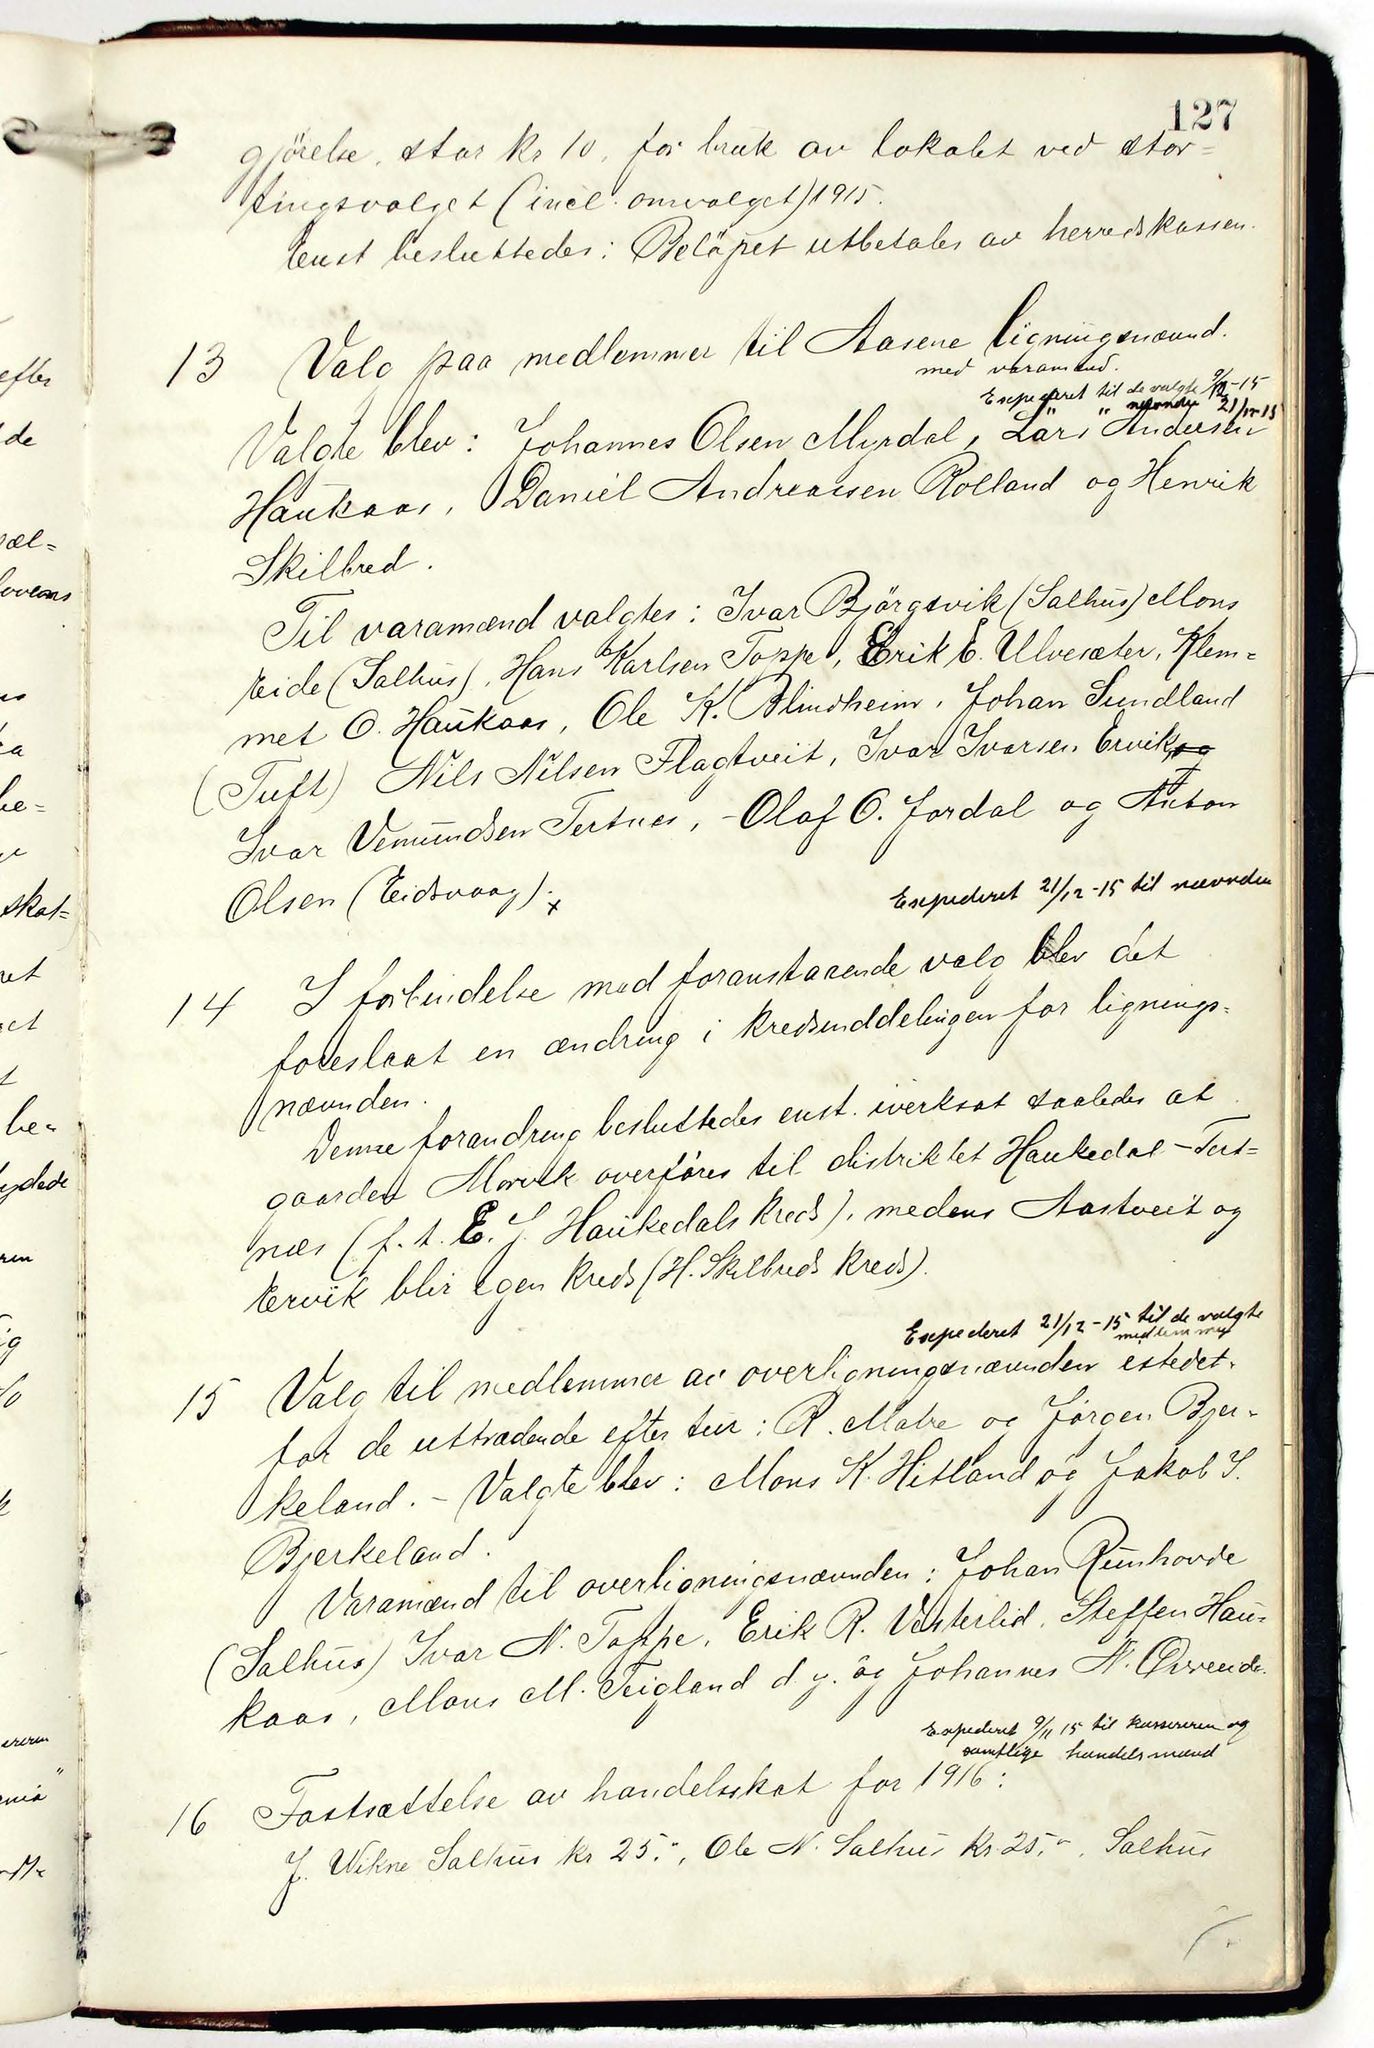 127
gjörelse, stor kr 10, for bruk av lokalet ved stor=
tingsvalget (incl. omvalget) 1915.
Enst besluttedes: Belöpet utbetales av herredskassen.
13 Valg paa medlemmer til Aasene ligningsnævnd.
med varamænd.
Expederet til de valgte 9/12-15
" " nævnden 21/12-15
Valgte blev: Johannes Olsen Myrdal, Lars Andersen
Haukaas, Daniel Andreassen Rolland og Henrik
Skilbred.
Til varamænd valgtes: Ivar Björgsvik (Salhus) Mons
Eide (Salhus), Hans Karlsen Toppe, Erik E. Ulvesæter, Klem=
met O. Haukaas, Ole K. Blindheim, Johan Sundland
(Tuft) Nils Nilsen Flagtveit, Ivar Ivarsen Ervik, og
Ivar Vemundsen Tertnes, - Olaf O. Jordal og Anton
Olsen (Eidsvaag). x
Expederet 21/12-15 til nævnden
14 I forbindelse med foranstaaende valg blev det
foreslaat en ændring i kredsinddelingen for lignings=
nævnden.
Denne forandring besluttedes enst. iverksat saaledes at
gaarden Morvik overföres til distriktet Haukedal - Tert=
nes (f. t. E. J. Haukedals kreds), medens Aastveit og
Ervik blir egen kreds (H. Skilbreds kreds).
Expederet 21/12-15 til de valgte
medlemmer
15 Valg til medlemmer av overligningsnævnden estedet
for de uttrædende efter tur: R. Matre og Jørgen Bjer=
keland. - Valgte blev: Mons K. Hitland og Jakob I.
Bjerkeland.
Varamænd til overligningsnævnden: Johan Runhovde
(Salhus) Ivar N. Toppe, Erik R. Vesterlid, Steffen Hau=
kaas, Mons M. Teigland d. y. og Johannes N.
Expederet 9/11 15 til kassereren og
samtlige handelsmænd
16 Fastsættelse av handelsskat for 1916:
J. Vikne Salhus kr 25.", Ole N. Salhus kr. 25.", Salhus